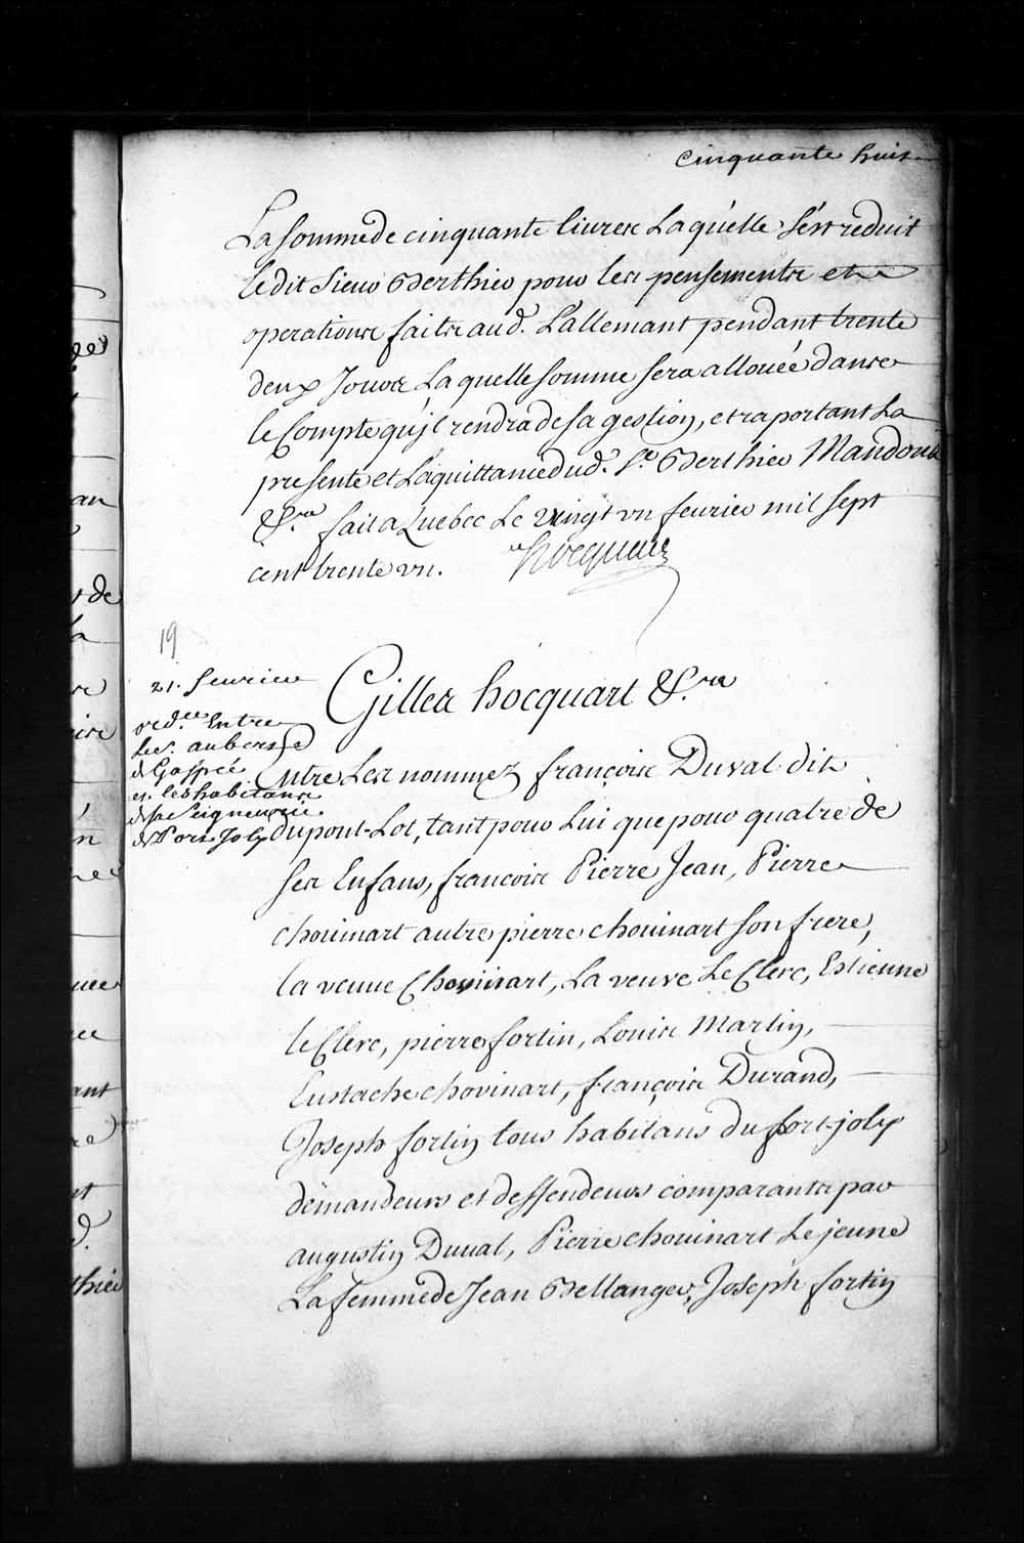 Cinquante huit
La somme de cinquante livres Laquelle s'est reduit
ledit Sieur Berthier pour les pensements et
operations faits aud. Lallemant pendant trente
deux Jours Laquelle somme sera allouée dans
le Compte qu'jl rendra de sa gestion, et raportant La
presente et Lquittance dud. Sr. Berthier Mandons
&.ra fait a Quebec Le vingt vn feurier mil sept
cent trente vn. Hocquart
19
21. feurier
Gilles hocquart &.ra
ord.ce Entre
Le Sr. aubert
de Gaspée
et les habitans
de sa Seigneurie
de Port Joly
Entre Les nommez françois Duval dit
dupont-Lot, tant pour Lui que pour quatre de
ses Enfans, francois Pierre Jean, Pierre
chouinart autre pierre chouinart son frere,
la veuue Chouinart, La veuve LeClerc, Estienne
leClerc, pierre fortin, Louis Martin,
Eustache chovinart, françois Durand,
Joseph fortin tous habitans du port-joly
demandeurs et deffendeurs comparants par
augustin Duual, Pierre chouinart Le jeune
La femme de Jean Bellanger, Joseph fortin